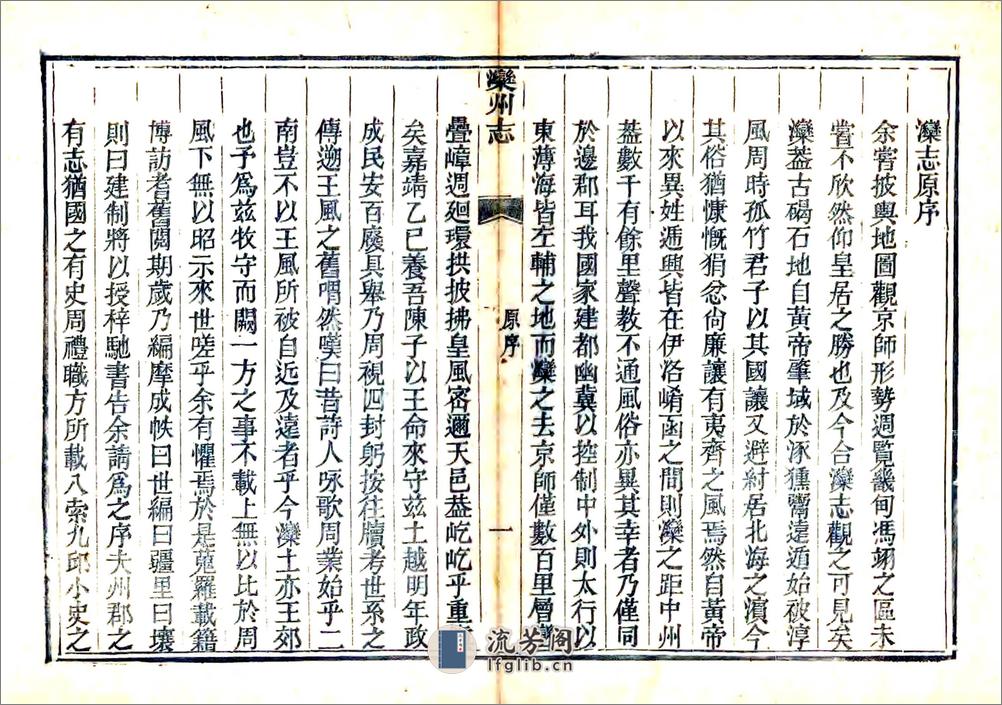 灤志原序
余嘗披輿地圖觀京師形勢週覽畿甸馮翊之區未
嘗不欣然仰皇居之勝也及今合灤志觀之可見矣
灤蓋古碣石地自黃帝肇域於涿獯鬻遠遁始被淳
風周時孤竹君子以其國讓又避紂居北海之濱今
其俗猶慷慨狷忿尙廉讓有夷齊之風焉然自黃帝
以來異姓遞興皆在伊洛崤函之間則灤之距中州
葢數千有餘里聲教不通風俗亦異其幸者乃僅同
於邊郡耳我國家建都幽冀以控制中外則太行以
東薄海皆左輔之地而灤之去京師僅數百里層巒
灤州志
原序
一
疊嶂週廻環拱披拂皇風密邇天邑葢屹屹乎重
矣嘉靖乙巳養吾陳子以王命來守茲土越明年政
成民安百廢具舉乃周視四封躬按往牘考世系之
傳遡王風之舊喟然嘆曰昔詩人咏歌周業始乎二
南豈不以王風所被自近及遠者乎今灤土亦王郊
也予爲茲牧守而闕一方之事不載上無以比於周
風下無以昭示來世嗟乎余有懼焉於是蒐羅載籍
博訪耆舊閱期歲乃編摩成帙曰世編曰疆里曰壤
則曰建制將以授梓馳書告余請爲之序夫州郡之
有志猶國之有史周禮職方所載八索九邱小史之
流芳阁
lfglib.cn